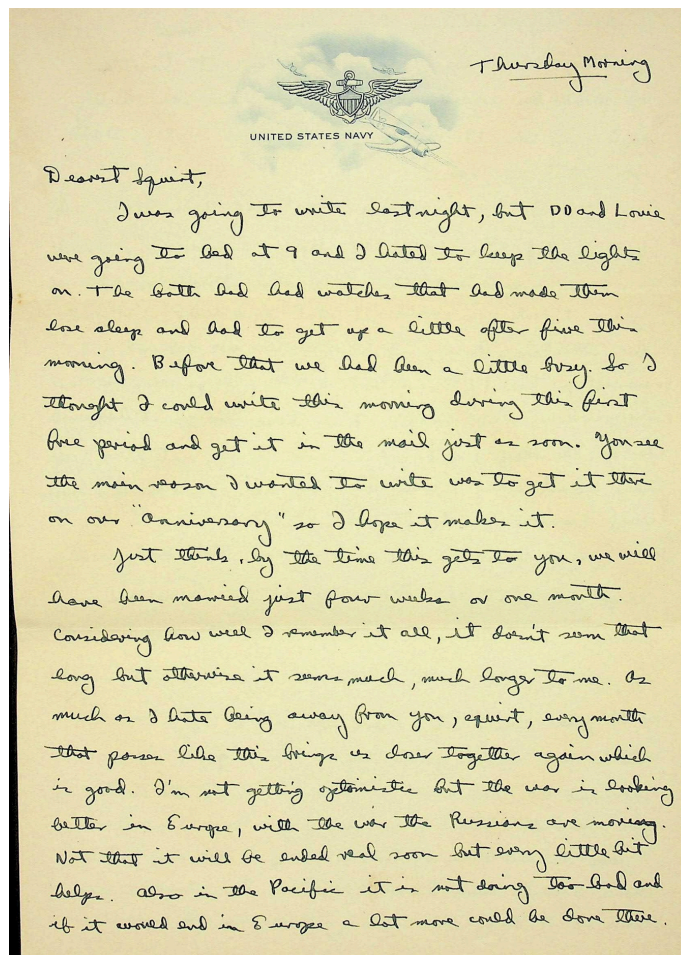 Thursday Morning
UNITED STATES NAVY
Dearest Squirt,
I was going to write last night, but DD and Louie
were going to bed at 9 and I hated to keep the lights
on. The both had had watches that had made them
lose sleep and had to get up a little after five this
morning. Before that we had been a little busy. So I
thought I could write this morning during this first
free period and get it in the mail just as soon. You see
the main reason I wanted to write was to get it there
on our "anniversary" so I hope it makes it.
Just think, by the time this gets to you, we will
have been married just four weeks or one month.
Considering how well I remember it all, it doesn't seem that
long but otherwise it seems much, much longer to me. As
much as I hate being away from you, squirt, every month
that passes like this brings us closer together again which
is good. I'm not getting optomistic but the war is looking
better in Europe, with the war the Russians are moving.
Not that it will be ended real soon but every little bit
helps. Also in the Pacific it is not doing too bad and
if it would end in Europe a lot more could be done there.